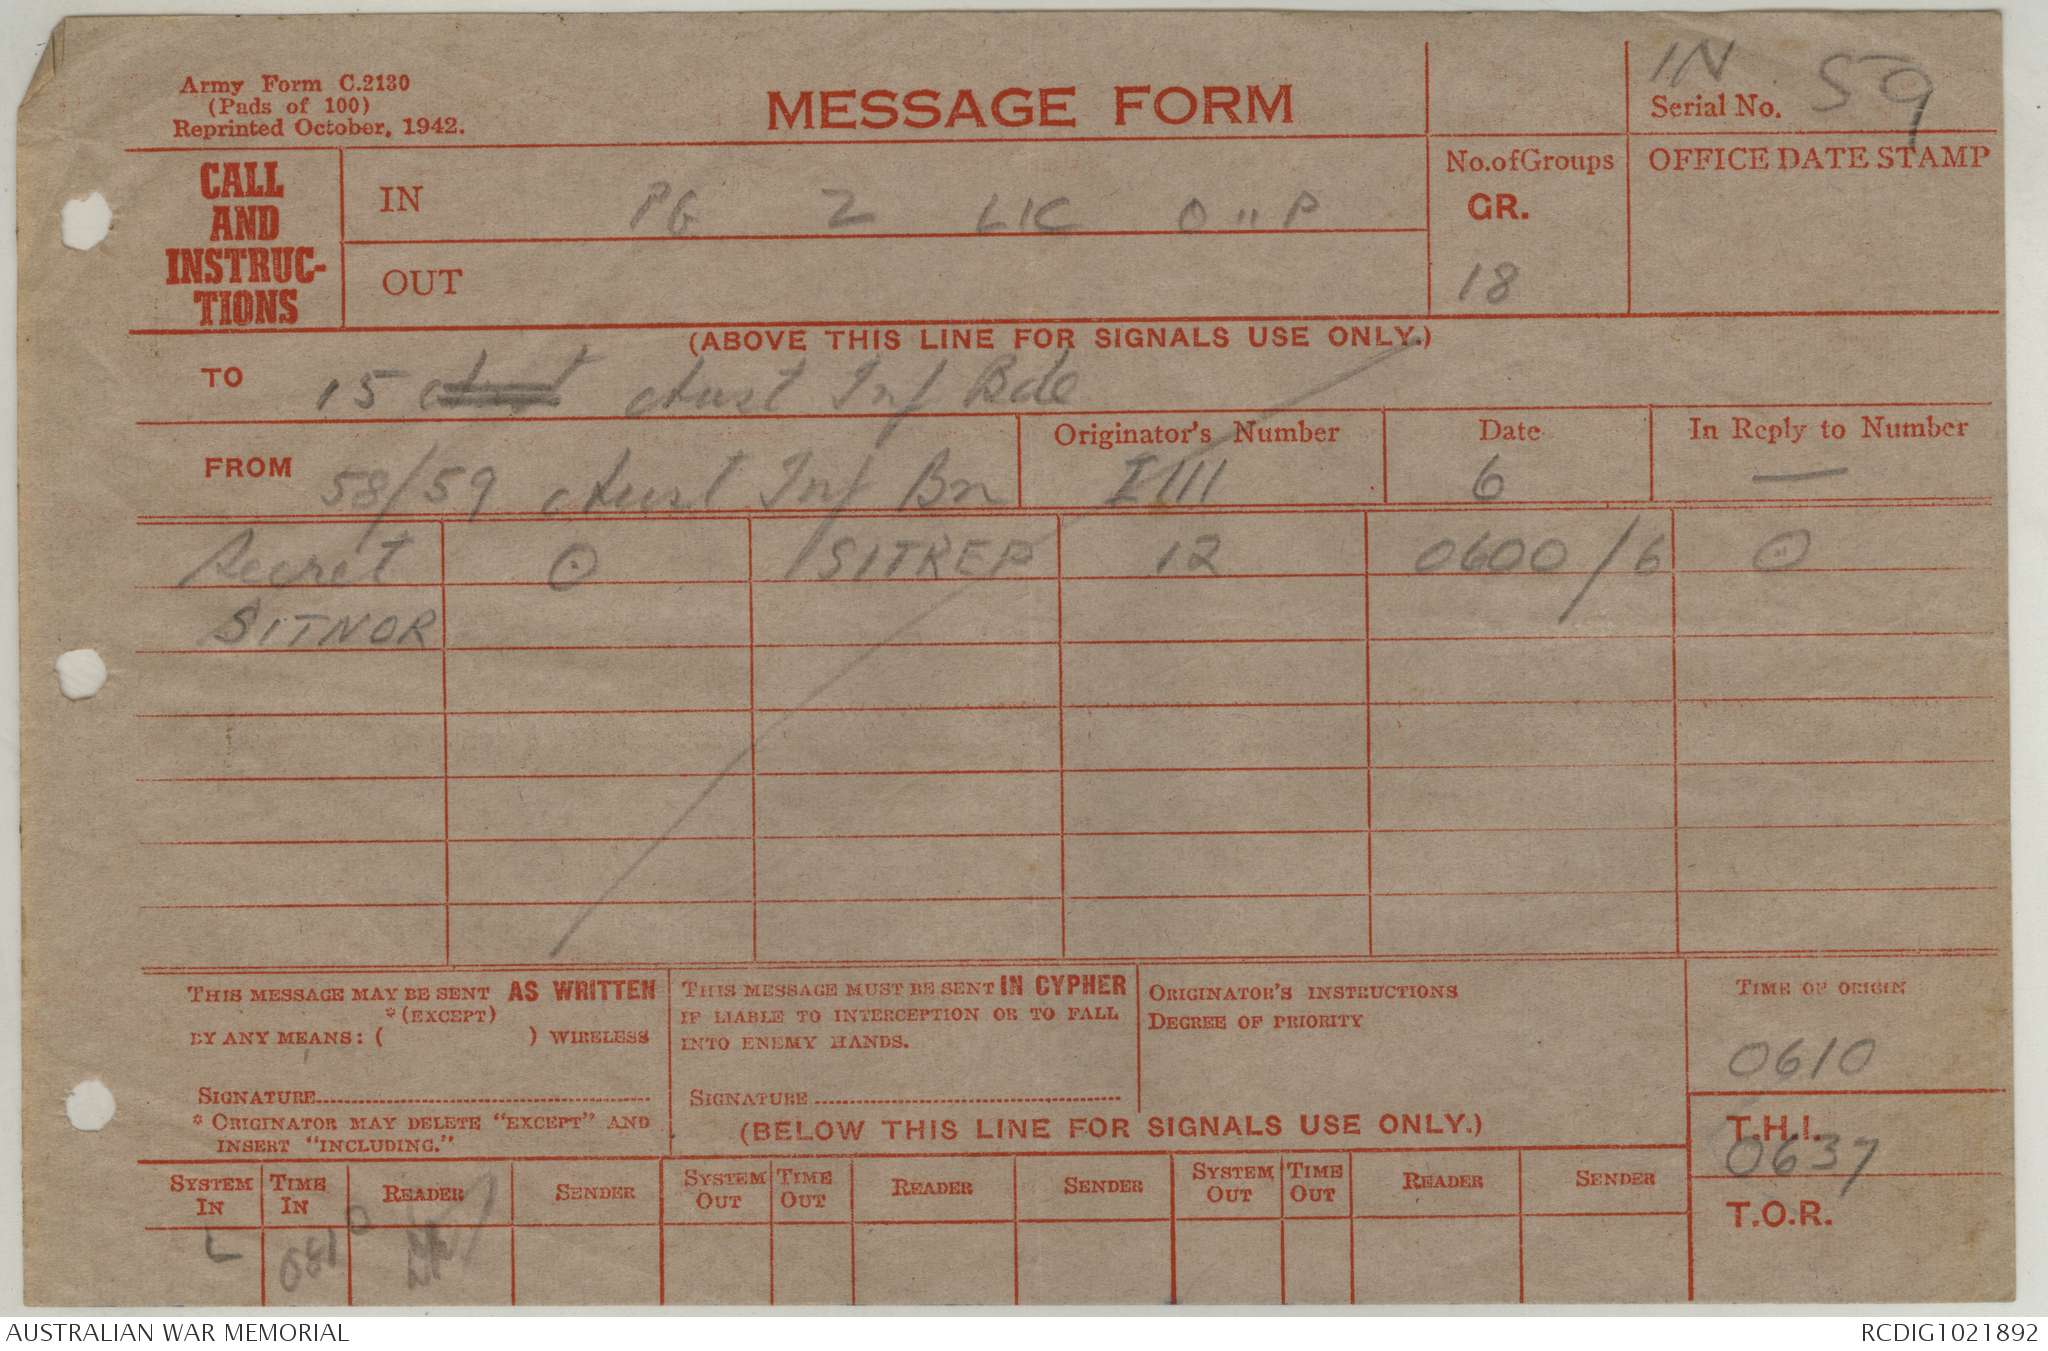 Army Form C.2130
(Pads of 100)
Reprinted October, 1942.
MESSAGE FORM
IN
Serial No. 59
CALL AND INSTRUC-TIONS
IN PG 2 LIC O "P
No. of Groups
GR.
18
OFFICE DATE STAMP
OUT
(ABOVE THIS LINE FOR SIGNALS USE ONLY.)
TO 15 Aust Aust Inf Bde
FROM 58/59 Aust Inf Bn
Originator's Number
I111
Date
6
In Reply to Number
—
Secret O SITREP 12 0600/6 O
SITNOR
THIS MESSAGE MAY BE SENT AS WRITTEN
*(EXCEPT)
BY ANY MEANS: ( ) WIRELESS
SIGNATURE
* ORIGINATOR MAY DELETE "EXCEPT" AND
INSERT "INCLUDING."
THIS MESSAGE MUST BE SENT IN CYPHER
IF LIABLE TO INTERCEPTION OR TO FALL
INTO ENEMY HANDS.
SIGNATURE
ORIGINATOR'S INSTRUCTIONS
DEGREE OF PRIORITY
TIME OF ORIGIN
0610
(BELOW THIS LINE FOR SIGNALS USE ONLY.)
T.H.I.
0637
T.O.R.
SYSTEM IN TIME IN READER SENDER SYSTEM OUT TIME OUT READER SENDER SYSTEM OUT TIME OUT READER SENDER
L
AUSTRALIAN WAR MEMORIAL
RCDIG1021892